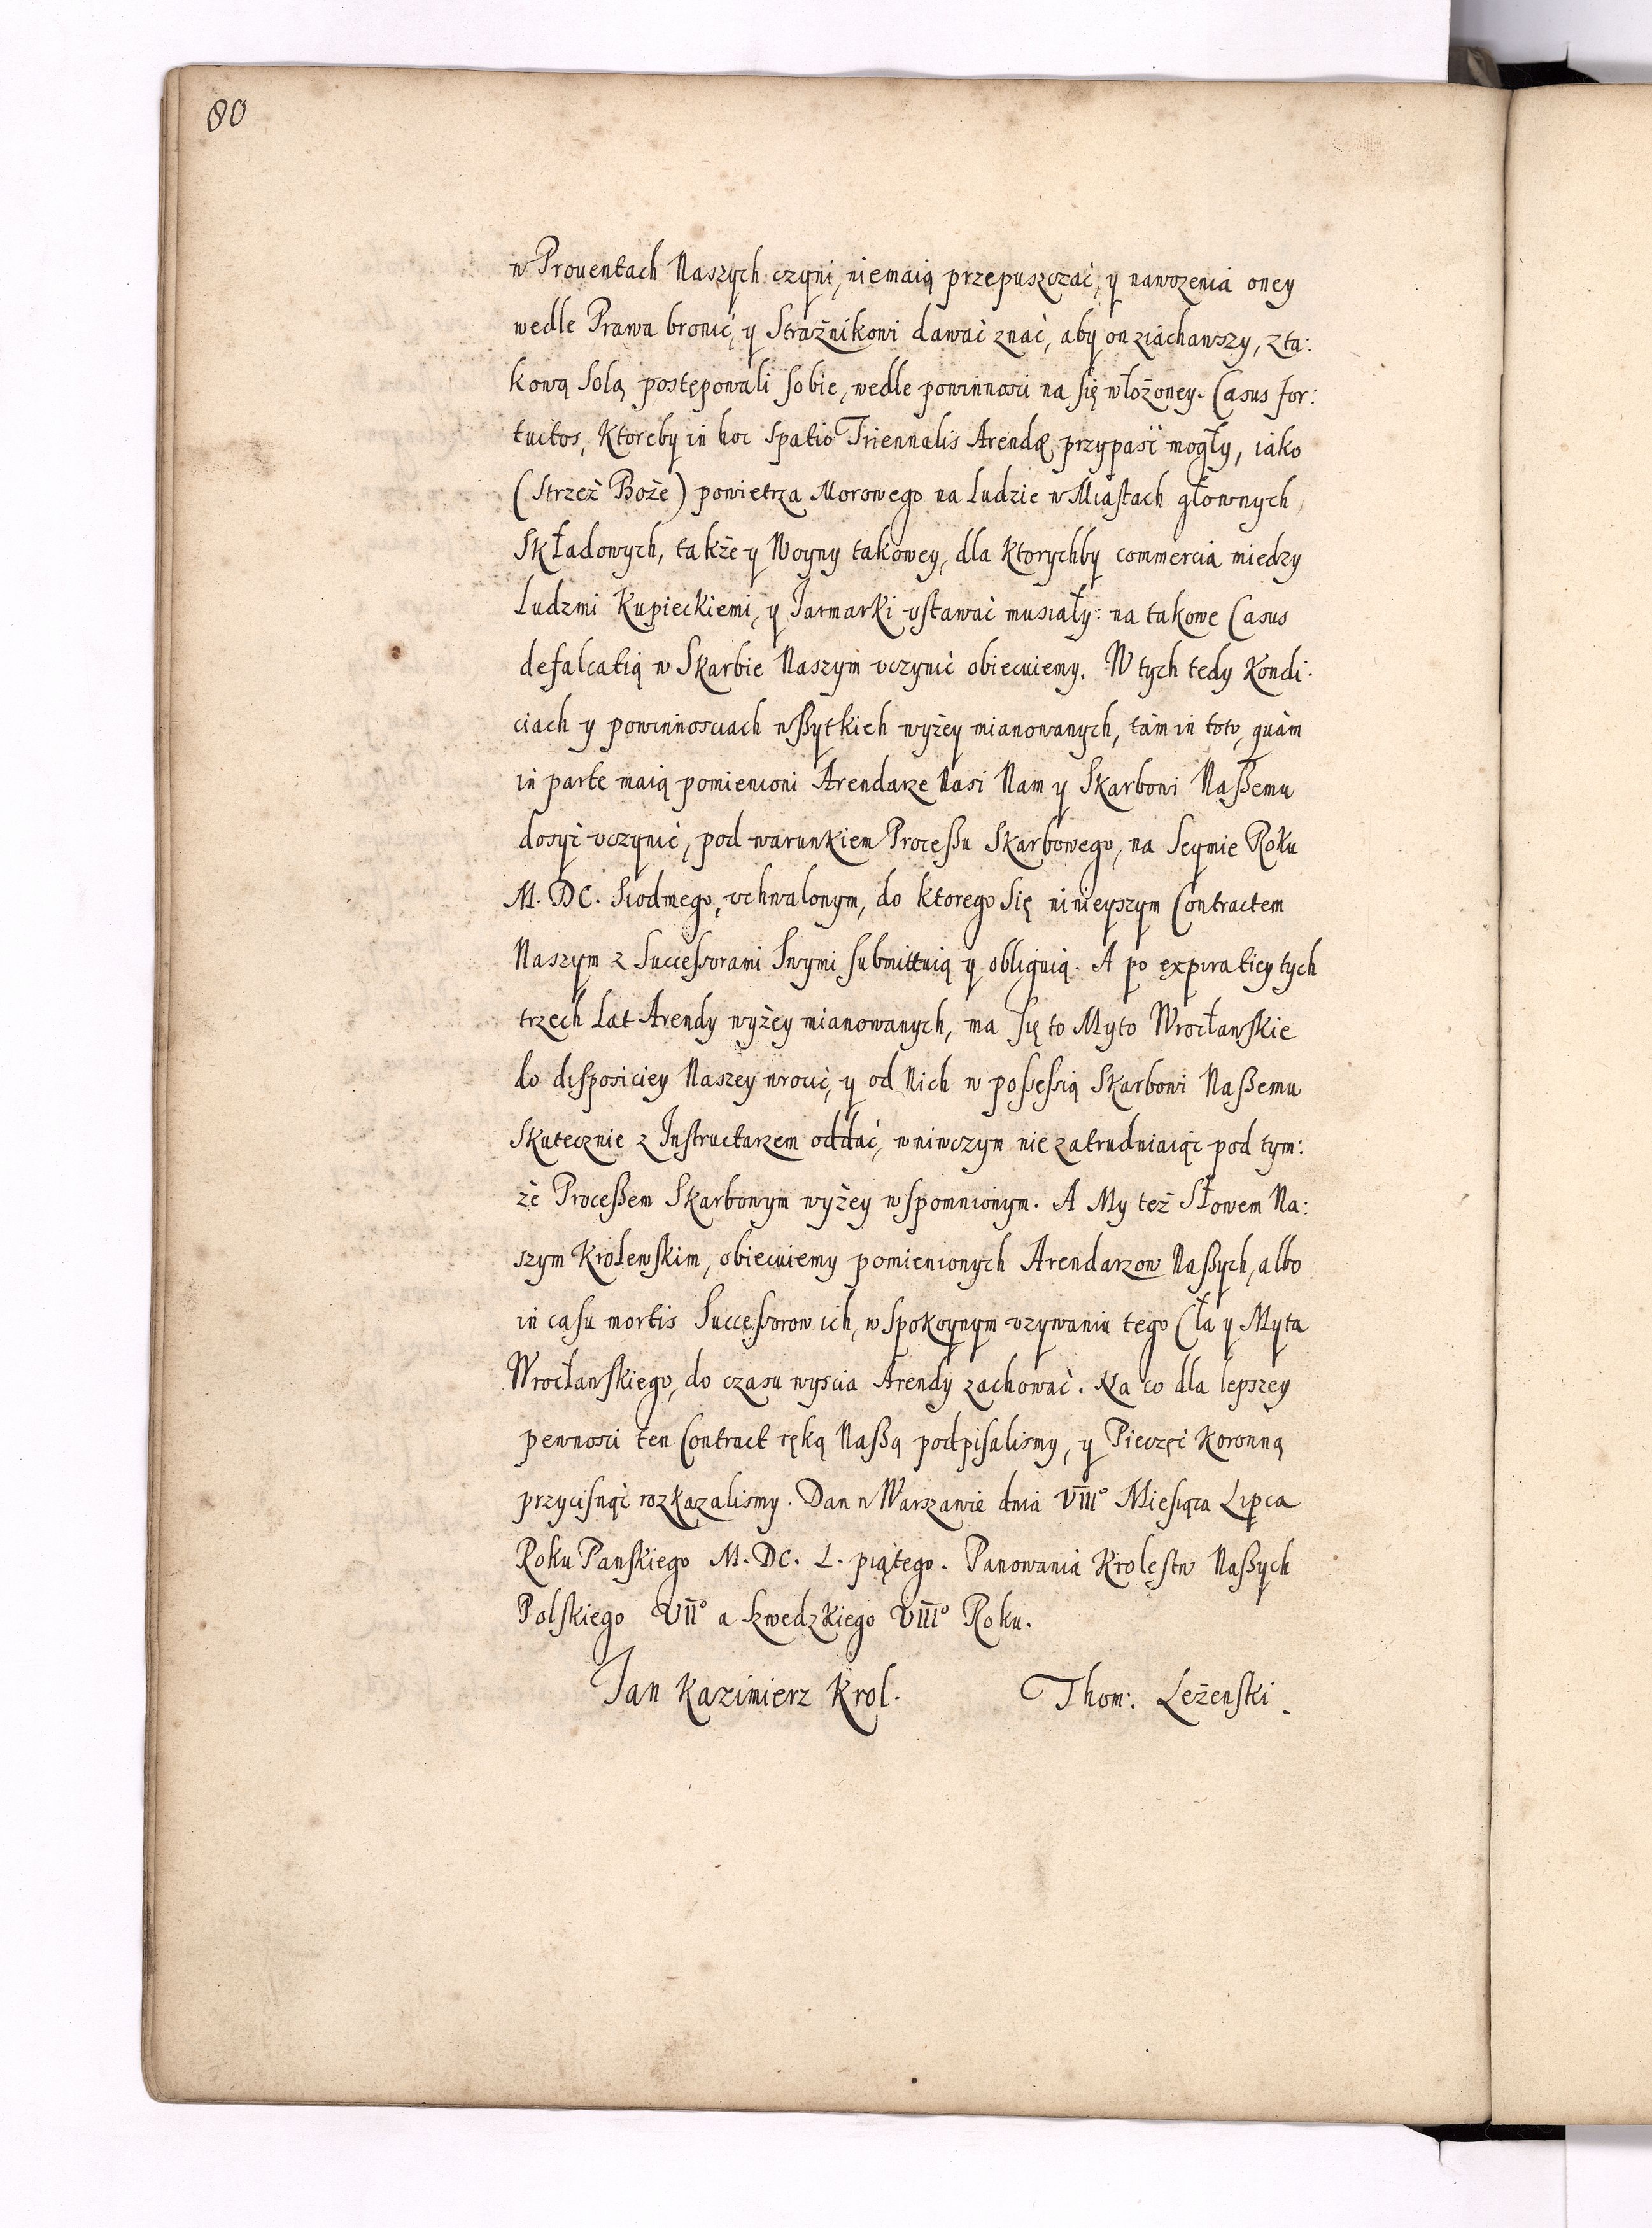 80
w Prouentach Naszych czyni, niemaią przepuszczać, y nawozenia oney
wedle Prawa bronić, y Strażnikowi dawać znać, aby on ziachawszy, z ta:
kową Solą postępowali sobie, wedle powinnosci na się włożoney. Casus for:
tuitos, Ktoreby in hoc spatio Triennalis Arendæ przypaśi mogły, iako
(Strzeż Boże) powietrza Morowego na Ludzie w Miastach głownych
Składowych, także y Woyny takowey, dla Ktorychby commercia miedzy
Ludzmi Kupieckiemi, y Jarmarki vstawać musiały: na takowe Casus
defalcatią w Skarbie Naszym vczynić obiecuiemy. W tych tedy Kondi:
ciach y powinnosciach wßytkich wyżey mianowanych, tàm in toto, quàm
in parte maią pomienioni Arendarze Nasi Nam y Skarbowi Naßemu
dosyć vczynić, pod warunkiem Proceßu Skarbowego, na Seymie Roku
M. DC. Siodmego, vchwalonym, do ktorego się ninieyszym Contractem
Naszym z Successorami Swymi submittuią y obliguią. A po expiratiey tych
trzech Lat Arendy wyżey mianowanych, ma się to Myto Wrocławskie
do disposiciey Naszey wroić, y od Nich w possessią Skarbowi Naßemu
Skutecznie z Instructarzem oddać, w niwczym nie zatrudniaiąc pod tym:
że Proceßem Skarbowym wyżey wspomnionym. A My też Słowem Na:
szym Krolewskim, obiecuiemy pomienionych Arendarzow Naßych, albo
in casu mortis Successorow ich, w spokoynym vzywaniu tego Cła y Myta
Wrocławskiego, do czasu wyscia Arendy zachować. Na co dla lepszey
pewnosci ten Contract ręką Naßą podpisalismy, y Pieczęć Koronną
przycisnąć rozkazalismy. Dan w Warszawie dnia VIII° Miesiąca Lipca
Roku Panskiego M. DC. L. piątego. Panowania Krolestw Naßych
Polskiego VII° a Szwedzkiego VIII° Roku.
Jan Kazimierz Krol. Thom: Leżenski.